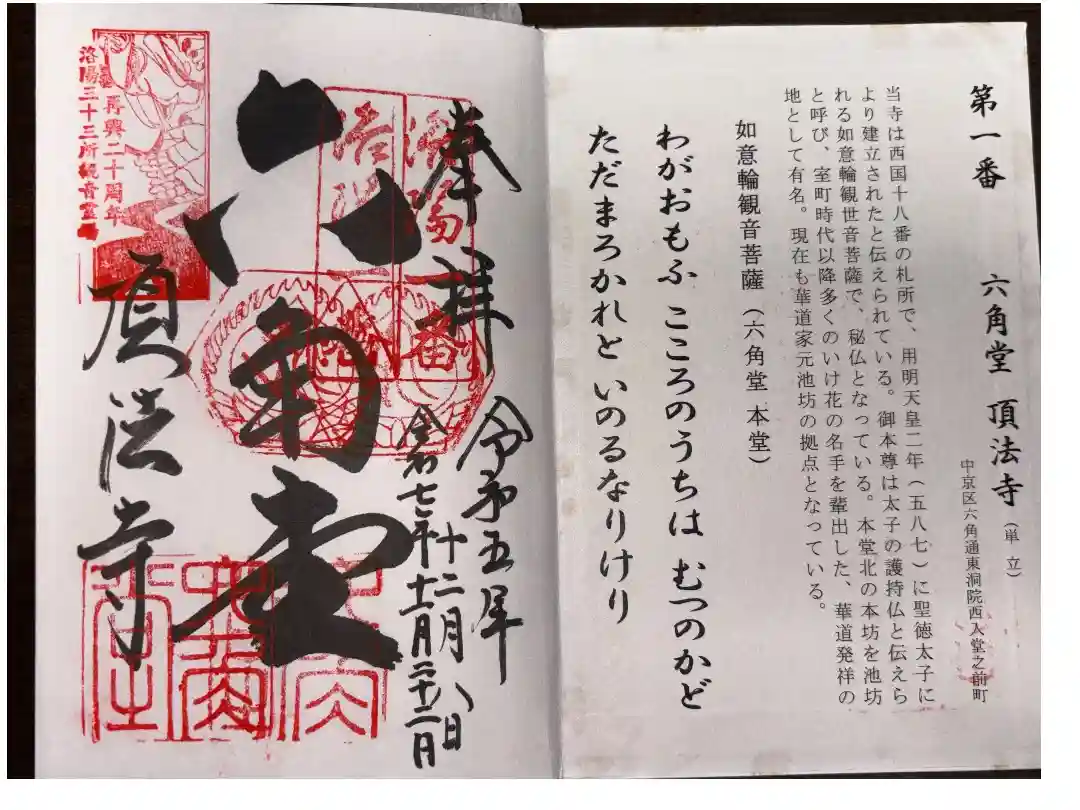 第一番 六角堂 頂法寺（単立）
中京区六角通東洞院西入堂之前町
当寺は西国十八番の札所で、用明天皇二年（五八七）に聖徳太子に
より建立されたと伝えられている。御本尊は太子の護持仏と伝えら
れる如意輪観世音菩薩で、秘仏となっている。本堂北の本坊を池坊
と呼び、室町時代以降多くのいけ花の名手を輩出した、華道発祥の
地として有名。現在も華道家元池坊の拠点となっている。
如意輪観音菩薩（六角堂 本堂）
わがおもふ こころのうちは むつのかど
ただまろかれと いのるなりけり
奉拝
令和五年
十二月八日
令和七年
六角堂
頂法寺
再興二十周年
洛陽三十三所観音霊場